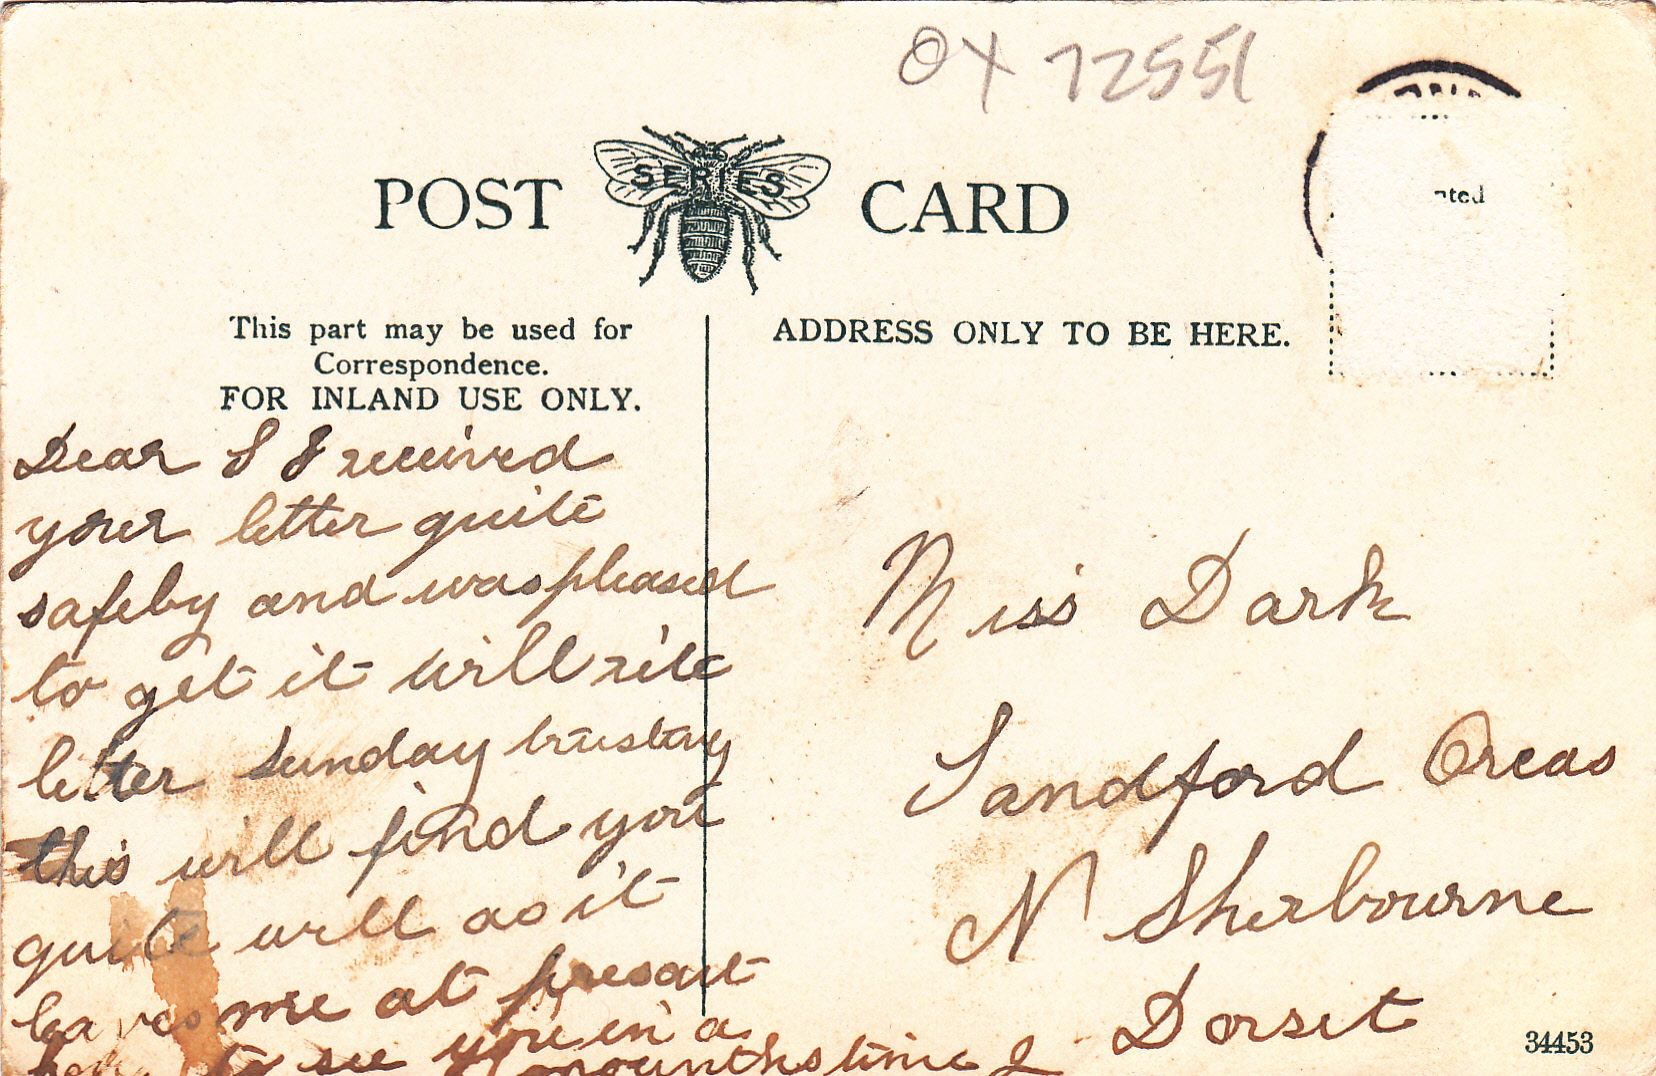 OX 72551
POST SERIES CARD
nted
This part may be used for
Correspondence.
FOR INLAND USE ONLY.
ADDRESS ONLY TO BE HERE.
Dear S I received
your letter quite
safely and was pleased
to get it will rite
letter Sunday trusting
this will find you
quite will as it
leaves me at presant
to see you in a
mounths time
Miss Dark
Sandford Orcas
N Sherbourne
Dorset
34453